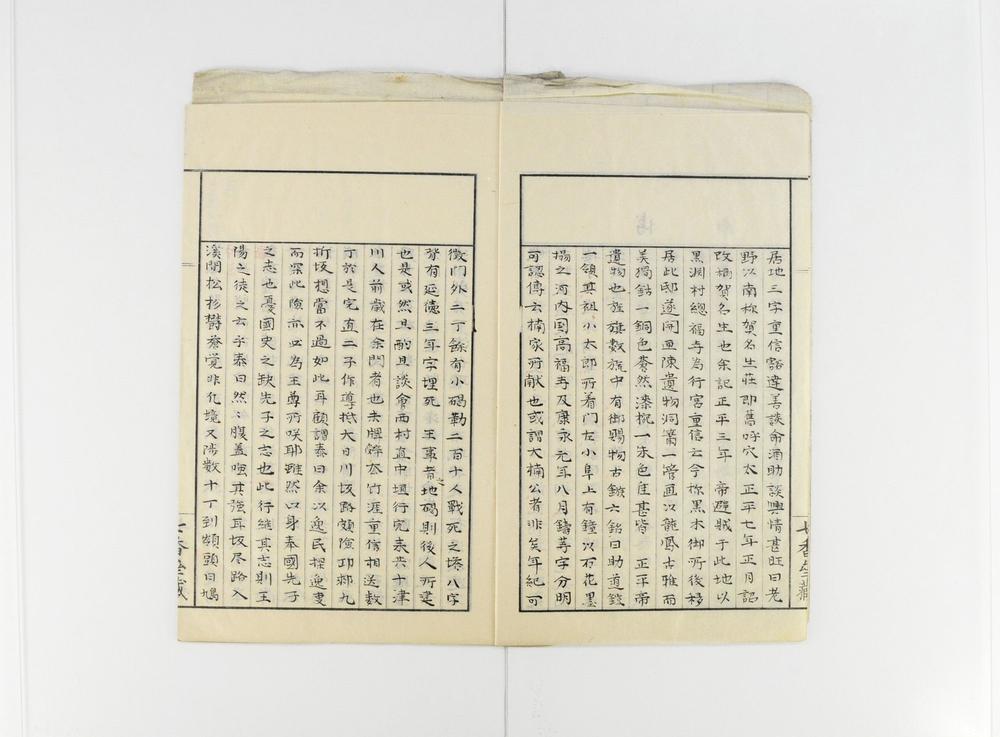 居地三字重信豁達善談命酒助談興情甚旺曰老
野以南称賀名生荘即舊呼穴太正平七年正月詔
改穪賀名生也余記正平三年　帝避賊于此地以
黒渕村總福寺為行宮重信云今称黒木御所後移
居此邸遂開匣陳遺物洞簫一管画以鏡鳳古雅而
美獨鈷一銅色蒼然漆椀一朱色佳甚皆　正平帝
遺物也旌旗数旒中有御賜物古鏃六銘曰助道鎧
一領其祖小太郎所着門左小阜上有鐘以石花墨
搨之河内国高福寺及康永元年八月鑄等字分明
可認傳云楠家所献也或謂大楠公者非矣年紀可
徴門外二丁餘有小碣勒二百十人戰死之塔八字
背有延德三年字埋死　王事者之地碣則後人所建
也是或然且酌且談會西村直中垣行寬来共十津
川人前歳在余門者也去臈辞左竹涯重信相送数
丁於是宅直二子作導抵大日川坂路頗険卭郲九
折坂想當不過如此耳顧謂泰曰余以逸民探逸叓
而罙此險亦必為王尊所咲耶雖然以身奉國先子
之志也憂國史之缺先子之志也此行継其志則王
陽之徒之云乎泰曰然〻腹蓋嗤其強耳坂尽路入
溪間松杉鬱蒼覚非凡境又陟数十丁到嶺頭曰鳩
七香堂蔵
七香堂蔵